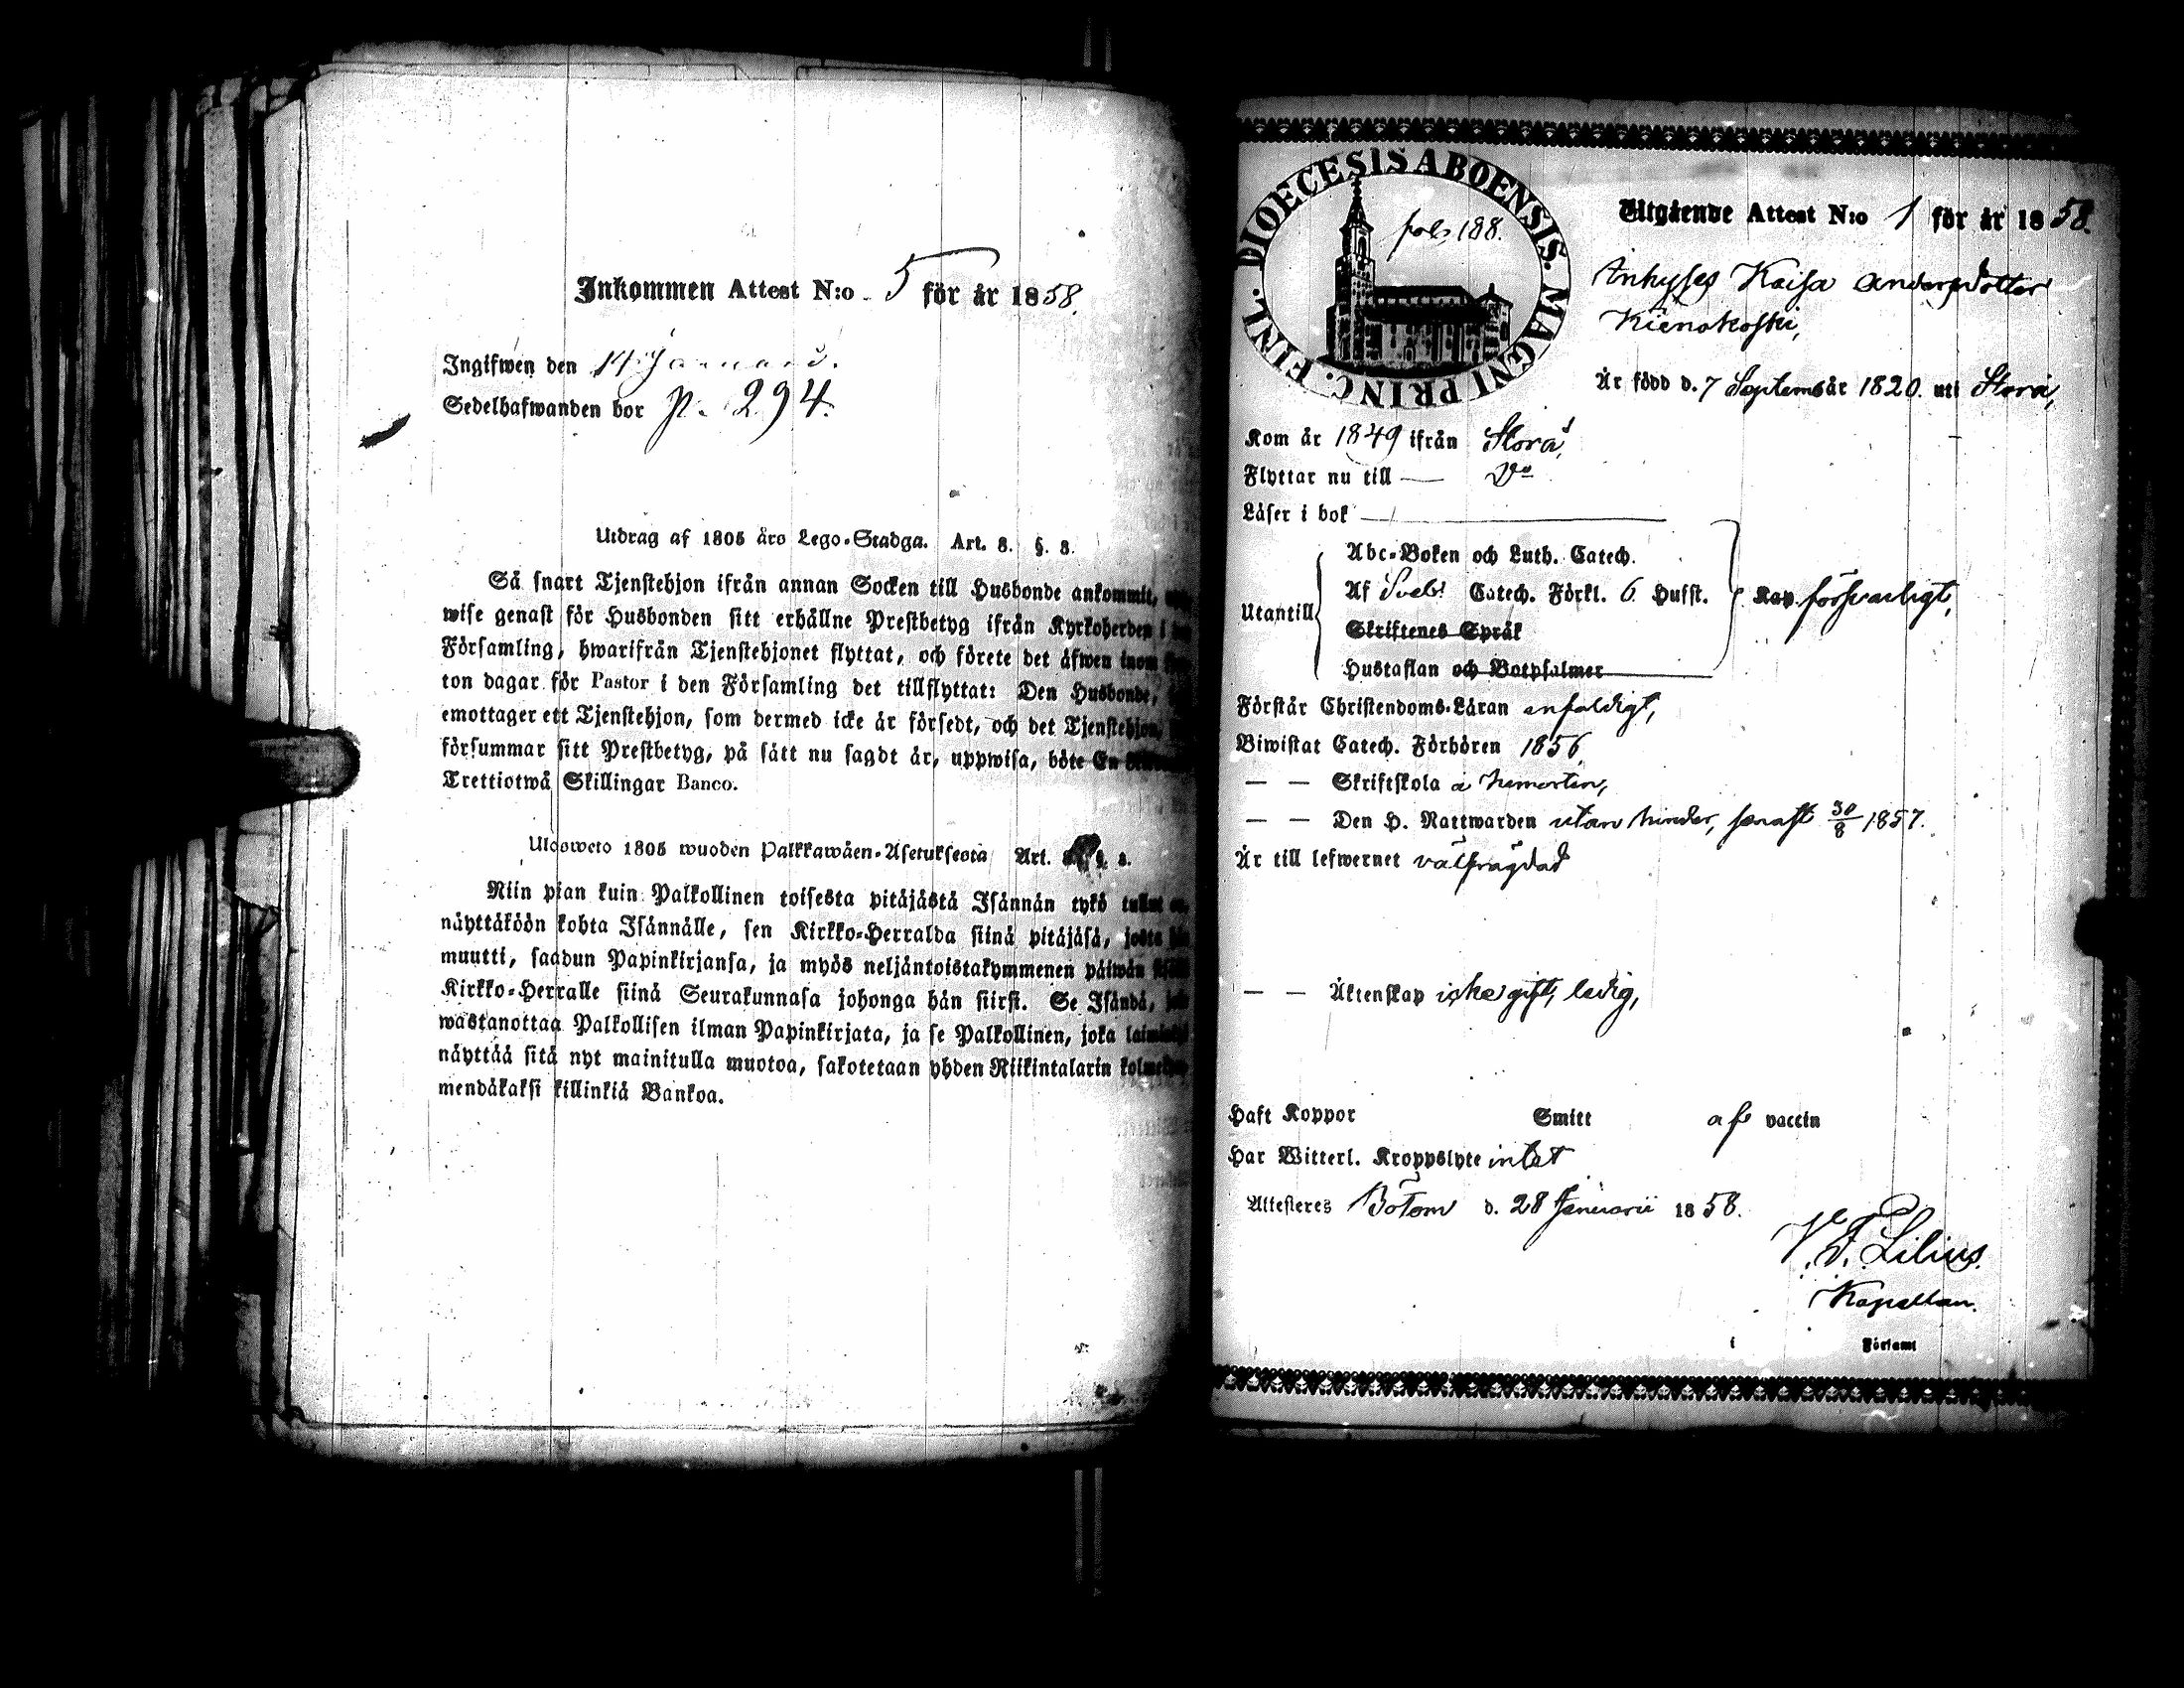 Inkommen Attest N:o 5 för år 1858.
Ingifwen den 14 Januari.
Sedelhafwanden bor p. 294.
Utdrag af 1805 års Lego-Stadga. Art. 8. §. 8.
Så snart Tjenstehjon ifrån annan Socken till Husbonde ankommit,
wise genast för Husbonden sitt erhållne Prestbetyg ifrån Kyrkoherden i
Församling, hwarifrån Tjenstehjonet flyttat, och förete det äfwen inom
ton dagar för Pastor i den Församling det tillflyttat: Den Husbonde,
emottager ett Tjenstehjon, som dermed icke är försedt, och det Tjenstehjon,
försummar sitt Prestbetyg, på sätt nu sagdt är, uppwisa, böte En
Trettiotwå Skillingar Banco.
Ulosweto 1805 wuoden Palkkawäen-Asetuksesta Art. §. 8.
Niin pian kuin Palkollinen toisesta pitäjästä Isännän tykö tullut on,
näyttäköön kohta Isännälle, sen Kirkko-Herralda siinä pitäjäsä, josta
muutti, saadun Papinkirjansa, ja myös neljäntoistakymmenen päiwän
Kirkko-Herralle siinä Seurakunnasa johonga hän siirsi. Se Isändä,
wastanottaa Palkollisen ilman Papinkirjata, ja se Palkollinen, joka
näyttää sitä nyt mainitulla muotoa, sakotetaan yhden Riikintalarin
mendäkaksi killinkiä Bankoa.
DIOECESIS ABOENSIS. MAGNI PRINC. FINL.
pol. 188.
Utgående Attest N:o 1 för år 1858.
Inhyses Kaisa Andersdotter
Kienokoski,
Är född d. 7 Septemb år 1820. uti Storå,
Kom år 1849 ifrån Storå,
Flyttar nu till — Do
Läser i bok
Utantill
Abc-Boken och Luth. Catech.
Af Sveb. Catech. Förkl. 6 Hufst. Kap. försvarligt,
Skriftenes Språk
Hustaflan och Botpsalmer
Förstår Christendoms-Läran enfaldigt,
Biwistat Catech. Förhören 1856,
— — Skriftskola å hemorten,
— — Den H. Nattwarden utan hinder, senast 30/8 1857.
Är till lefwernet välfrägdad
— — Äktenskap icke gift, ledig,
Haft Koppor Smitt af vaccin
Har Witterl. Kroppslyte intet
Attesteres Bötom d. 28 Januarii 1858.
V. F. Lilius.
Kapellan.
i Församl